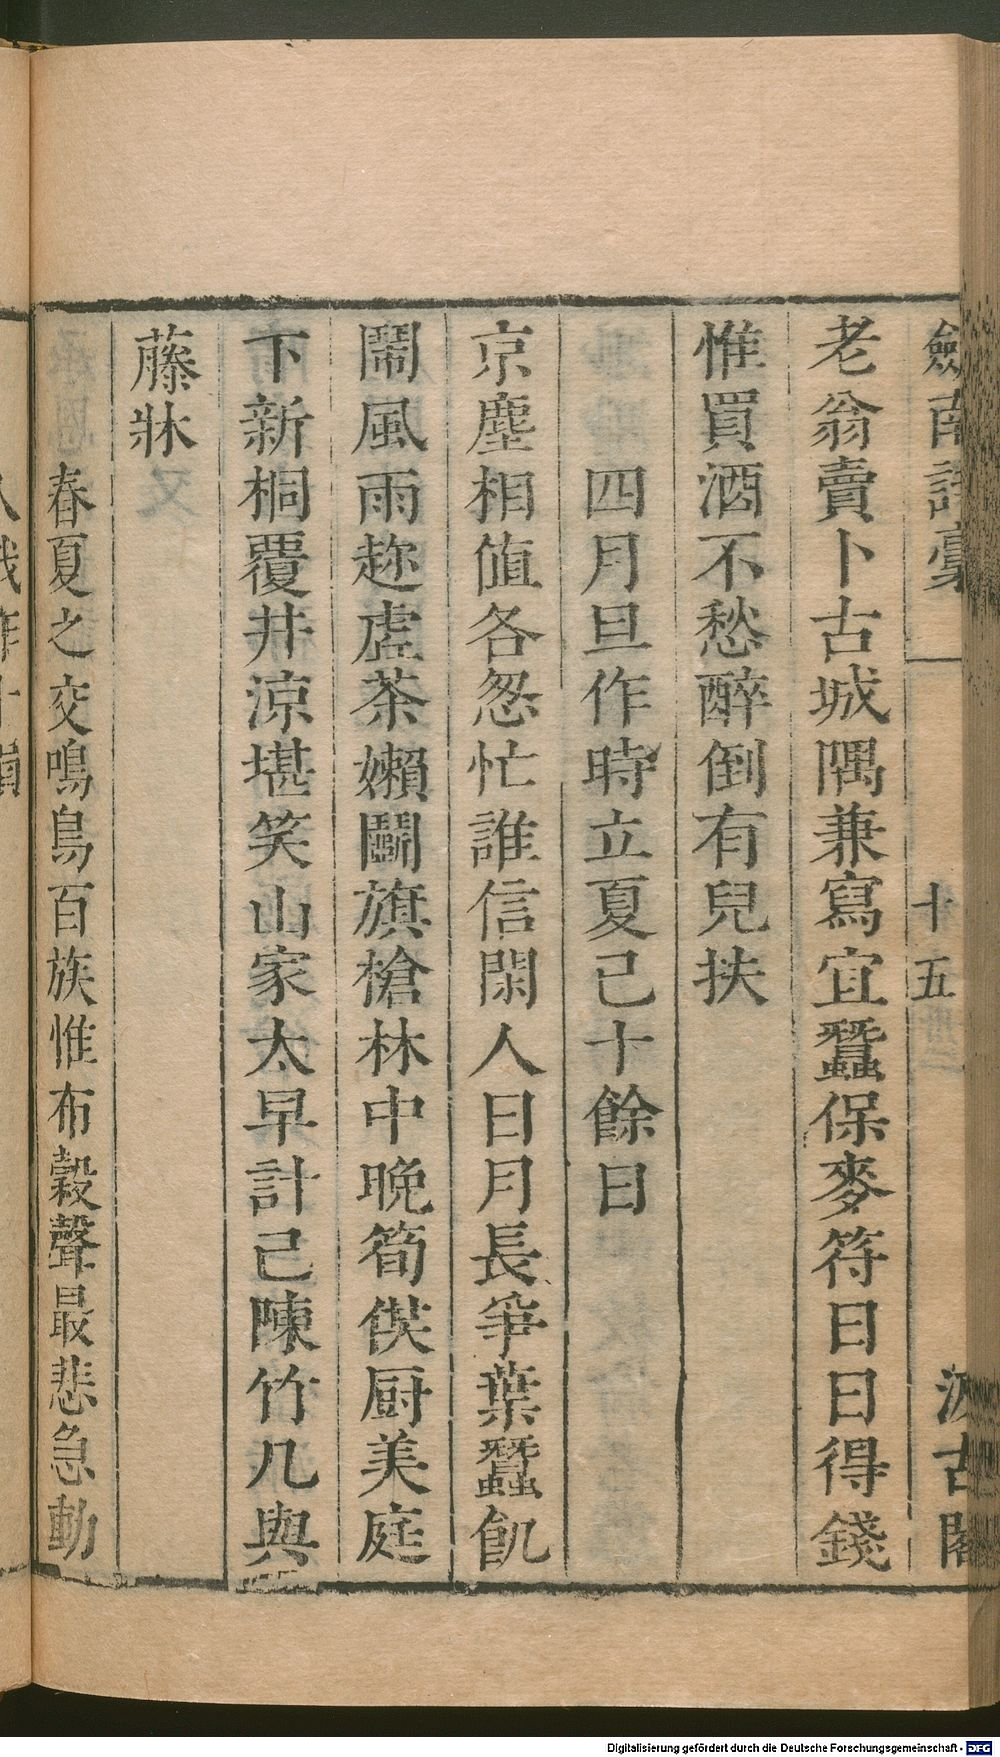 劍南詩稾 十五 汲古閣
老翁賣卜古城隅兼寫宜蠶保麥符日日得錢
惟買酒不愁醉倒有兒扶
四月旦作時立夏已十餘日
京塵相值各怱忙誰信閑人日月長爭葉蠶飢
鬧風雨趂虛茶嬾鬭旗槍林中晚筍供厨美庭
下新桐覆井涼堪笑山家太早計已陳竹几與
藤牀
春夏之交鳴鳥百族惟布穀聲最悲急動
Digitalisierung gefördert durch die Deutsche Forschungsgemeinschaft - DFG